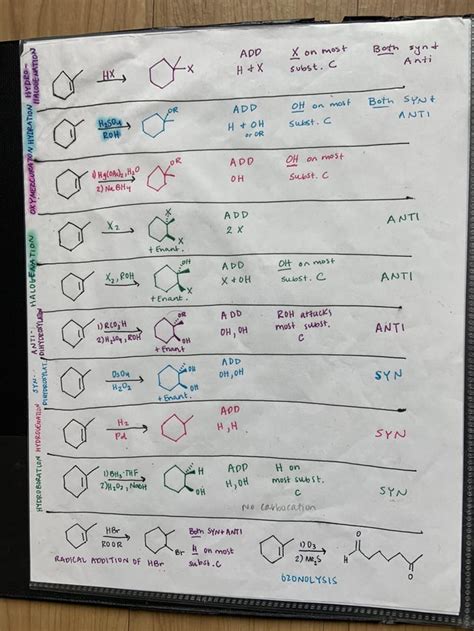 HYDRO-
HALOGENATION
HX
X
ADD
H + X
X on most
subst. C
Both syn &
Anti
HYDRATION
H2SO4
ROH
OR
ADD
H + OH
or OR
OH on most
subst. C
Both SYN &
ANTI
OXYMERCURATION
1) Hg(OAc)2, H2O
2) NaBH4
OR
ADD
OH
OH on most
subst. C
HALOGENATION
X2
X
X
+ Enant.
ADD
2 X
ANTI
X2, ROH
OH
X
+ Enant.
ADD
X + OH
OH on most
subst. C
ANTI
ANTI-
DIHYDROXYLATION
1) RCO3H
2) H2SO4, ROH
OR
OH
+ Enant
ADD
OH, OH
ROH attacks
most subst.
C
ANTI
SYN-
OsO4
H2O2
OH
OH
+ Enant.
ADD
OH, OH
SYN
HYDROGENATION
H2
Pd
ADD
H, H
SYN
HYDROBORATION
1) BH3·THF
2) H2O2, NaOH
H
OH
ADD
H, OH
H on
most subst.
C
SYN
No carbocation
HBr
ROOR
Br
Both SYN & ANTI
H on most
subst. C
RADICAL ADDITION OF HBr
1) O3
2) Me2S
O
H
O
OZONOLYSIS